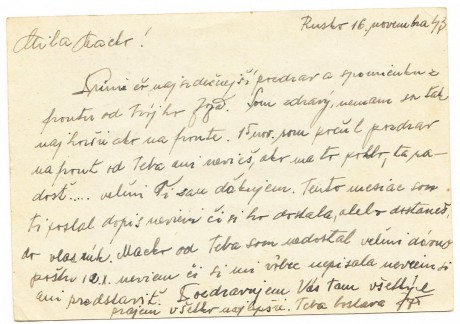 Rusko 16. novembra 43
Milá Macko!
Prijmi čo najsrdečnejší pozdrav a spomienku z
frontu od Tvojho Jožo. Som zdravý, nemám sa tak
najhoršie ako na fronte. 15 nov. som počul pozdrav
na front od Teba ani nevieš, ako ma to potešilo, tá ra-
dosť..... veľmi Ti zan ďakujem. Tento mesiac som
ti poslal dopis neviem či si ho dostala, alebo dostaneš,
do vlastných. Macko od Teba som nedostal veľmi dávno
poštu neviem či si mi vôbec nepísala neviem si
ani predstaviť. Pozdravujem Vás tam všetkých
prajem všetko najlepšie. Teba bozkáva